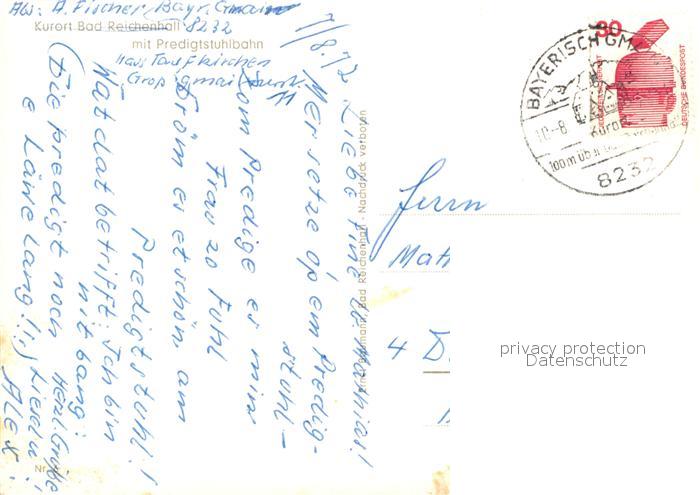 Abs: A. Fischer, Bayr. Gmain
8232
Kurort Bad Reichenhall
mit Predigtstuhlbahn
Haus Taufkirchen
Großgmainstr.
11
7/8.72
Liebe Tine u. Matthias!
Mer setze op em Predig-
stuhl -
om Predige es min
Frau zo fuhl
Dröm es et schön am
Predigtstuhl!
Wat dat betrifft: Ich bin
nit bang:
(Die Predigt noch
e Länge lang!!!)
Herzl. Grüße
Liesel u.
Alex
Bad Reichenhall - Nachdruck verboten
Nr.
BAYERISCH GMAIN
10.-8.
Kurort
8232
30
DEUTSCHE BUNDESPOST
Herrn
Math
4 D
privacy protection
Datenschutz